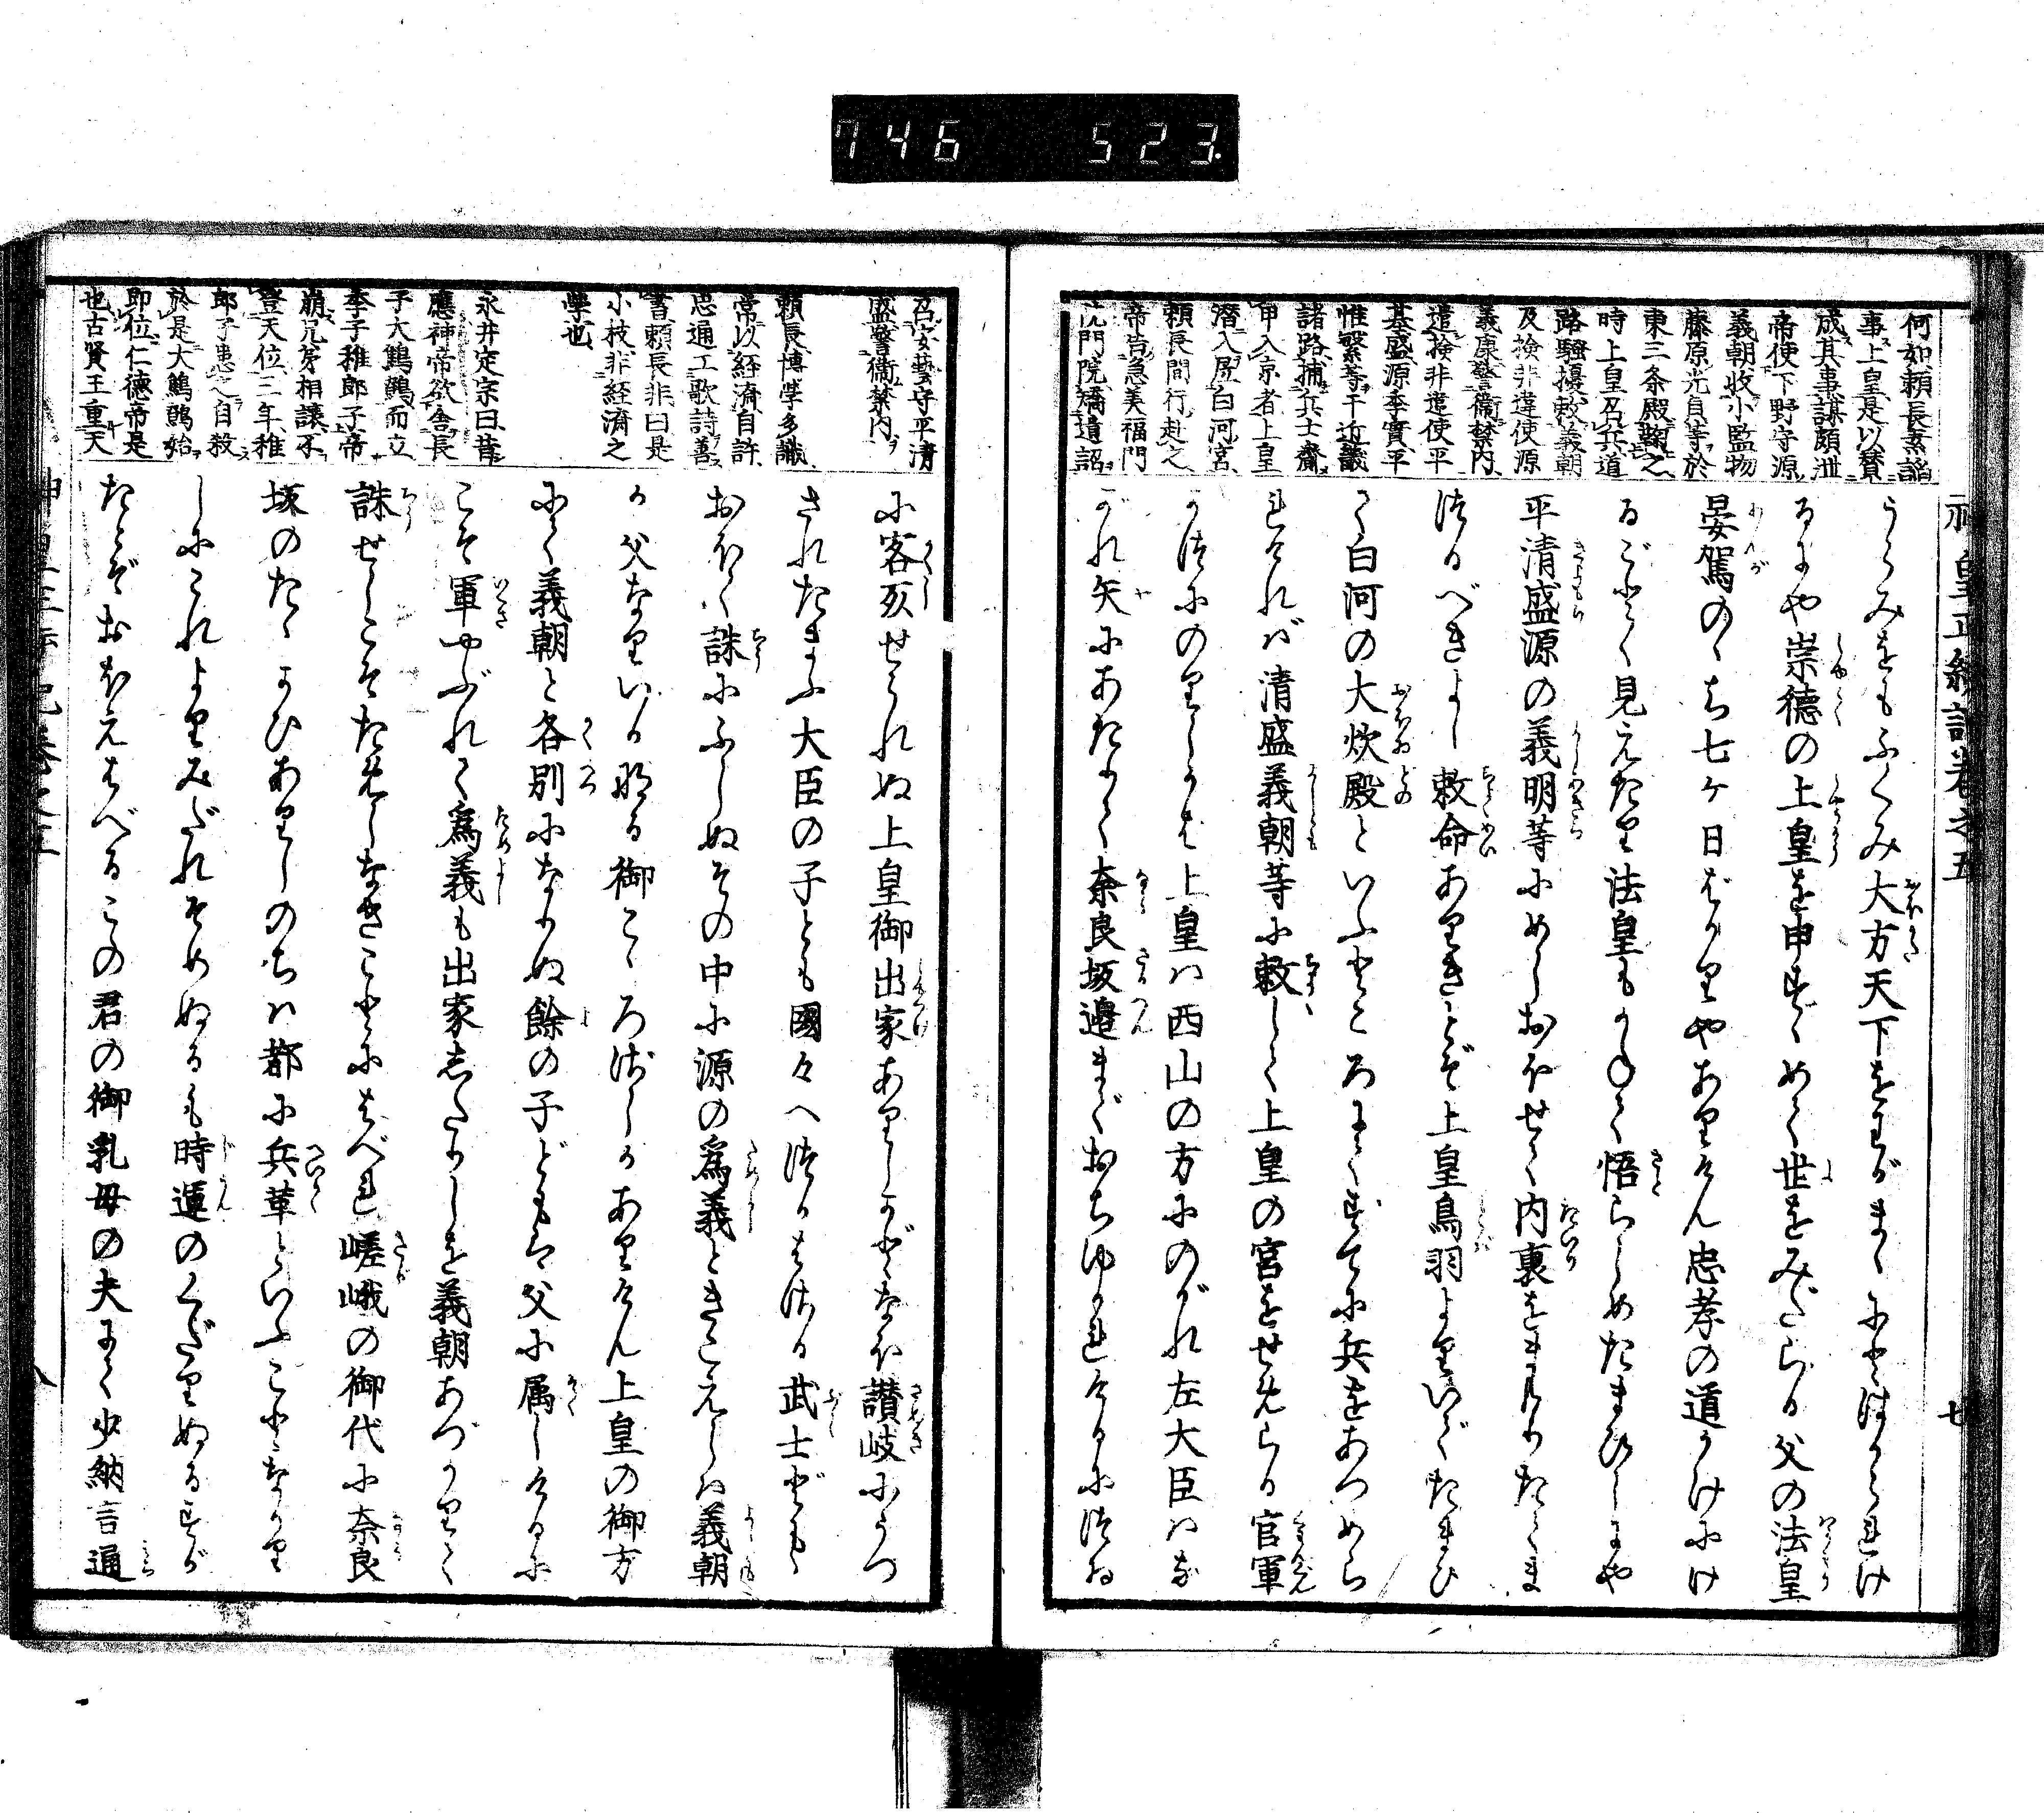 746 523.
神皇正統記巻之五
七
何如頼長素諂
事上皇是以賛
成其事謀頗泄
帝使下野守源
義朝收小監物
藤原光貞等於
東三条殿鞠之
時上皇召兵道
路騒擾敕義朝
及検非違使源
義康警衞禁内
遣検非違使平
基盛源季實平
惟繁等于近畿
諸路捕兵士齎
甲入京者上皇
潜入居白河宮
頼長間行赴之
帝告急美福門
院門院矯遺詔
うらみをもふくみ大方天下をわがまゝにとはからはれけ
るにや崇徳の上皇を申すゝめて世をみだらる父の法皇
晏駕のゝち七ヶ日ばかりやありけん忠孝の道かけにけ
るごとく見えたり法皇もかねて悟らしめたまひしにや
平清盛源の義明等にめしおほせて内裏をまもりたてま
つるべきよし敕命ありきとぞ上皇鳥羽よりいでたまひ
て白河の大炊殿といふところにてすでに兵をあつめら
れければ清盛義朝等に敕して上皇の宮をせめらる官軍
かつにのりしかは上皇ハ西山の方にのがれ左大臣ハな
がれ矢にあたりて奈良坂邉までおちゆかれけるにつゐ
召安藝守平清
盛警衞禁内
頼長博學多識
常以経濟自許
忠通工歌詩善
書頼長非曰是
小枝非経濟之
學也
永井定宗曰昔
應神帝欲舎長
子大鷦鷯而立
季子稚郎子帝
崩兄弟相讓不
登天位三年稚
郎子患之自殺
於是大鷦鷯始
即位仁徳帝是
也古賢王重天
に客死せられぬ上皇御出家ありしかどなほ讃岐にうつ
されたまふ大臣の子とも國々へつかはさる武士どもゝ
おほく誅にふしぬその中に源の爲義ときこえしハ義朝
か父なりいかなる御こゝろざしかありけん上皇の御方
にて義朝と各別になりぬ餘の子どもは父に属しけるに
こそ軍やぶれて爲義も出家したりしを義朝あづかりて
誅せしこそためしなきことにはべれ嵯峨の御代に奈良
坂のたゝかひありしのちハ都に兵革といふことなかり
しにこれよりみだれそめぬるも時運のくだりぬるすが
たとぞおぼえはべるこの君の御乳母の夫にて少納言通
八